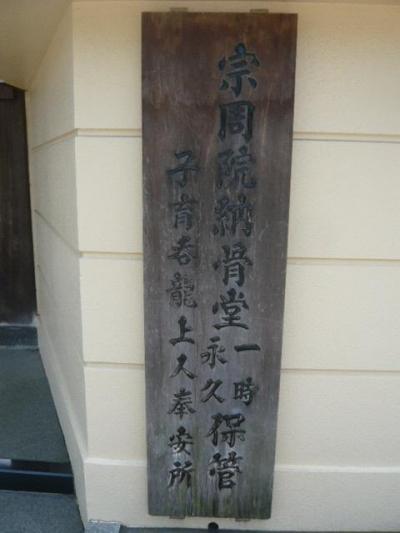 宗周院納骨堂一時永久保管
子育呑龍上人奉安所